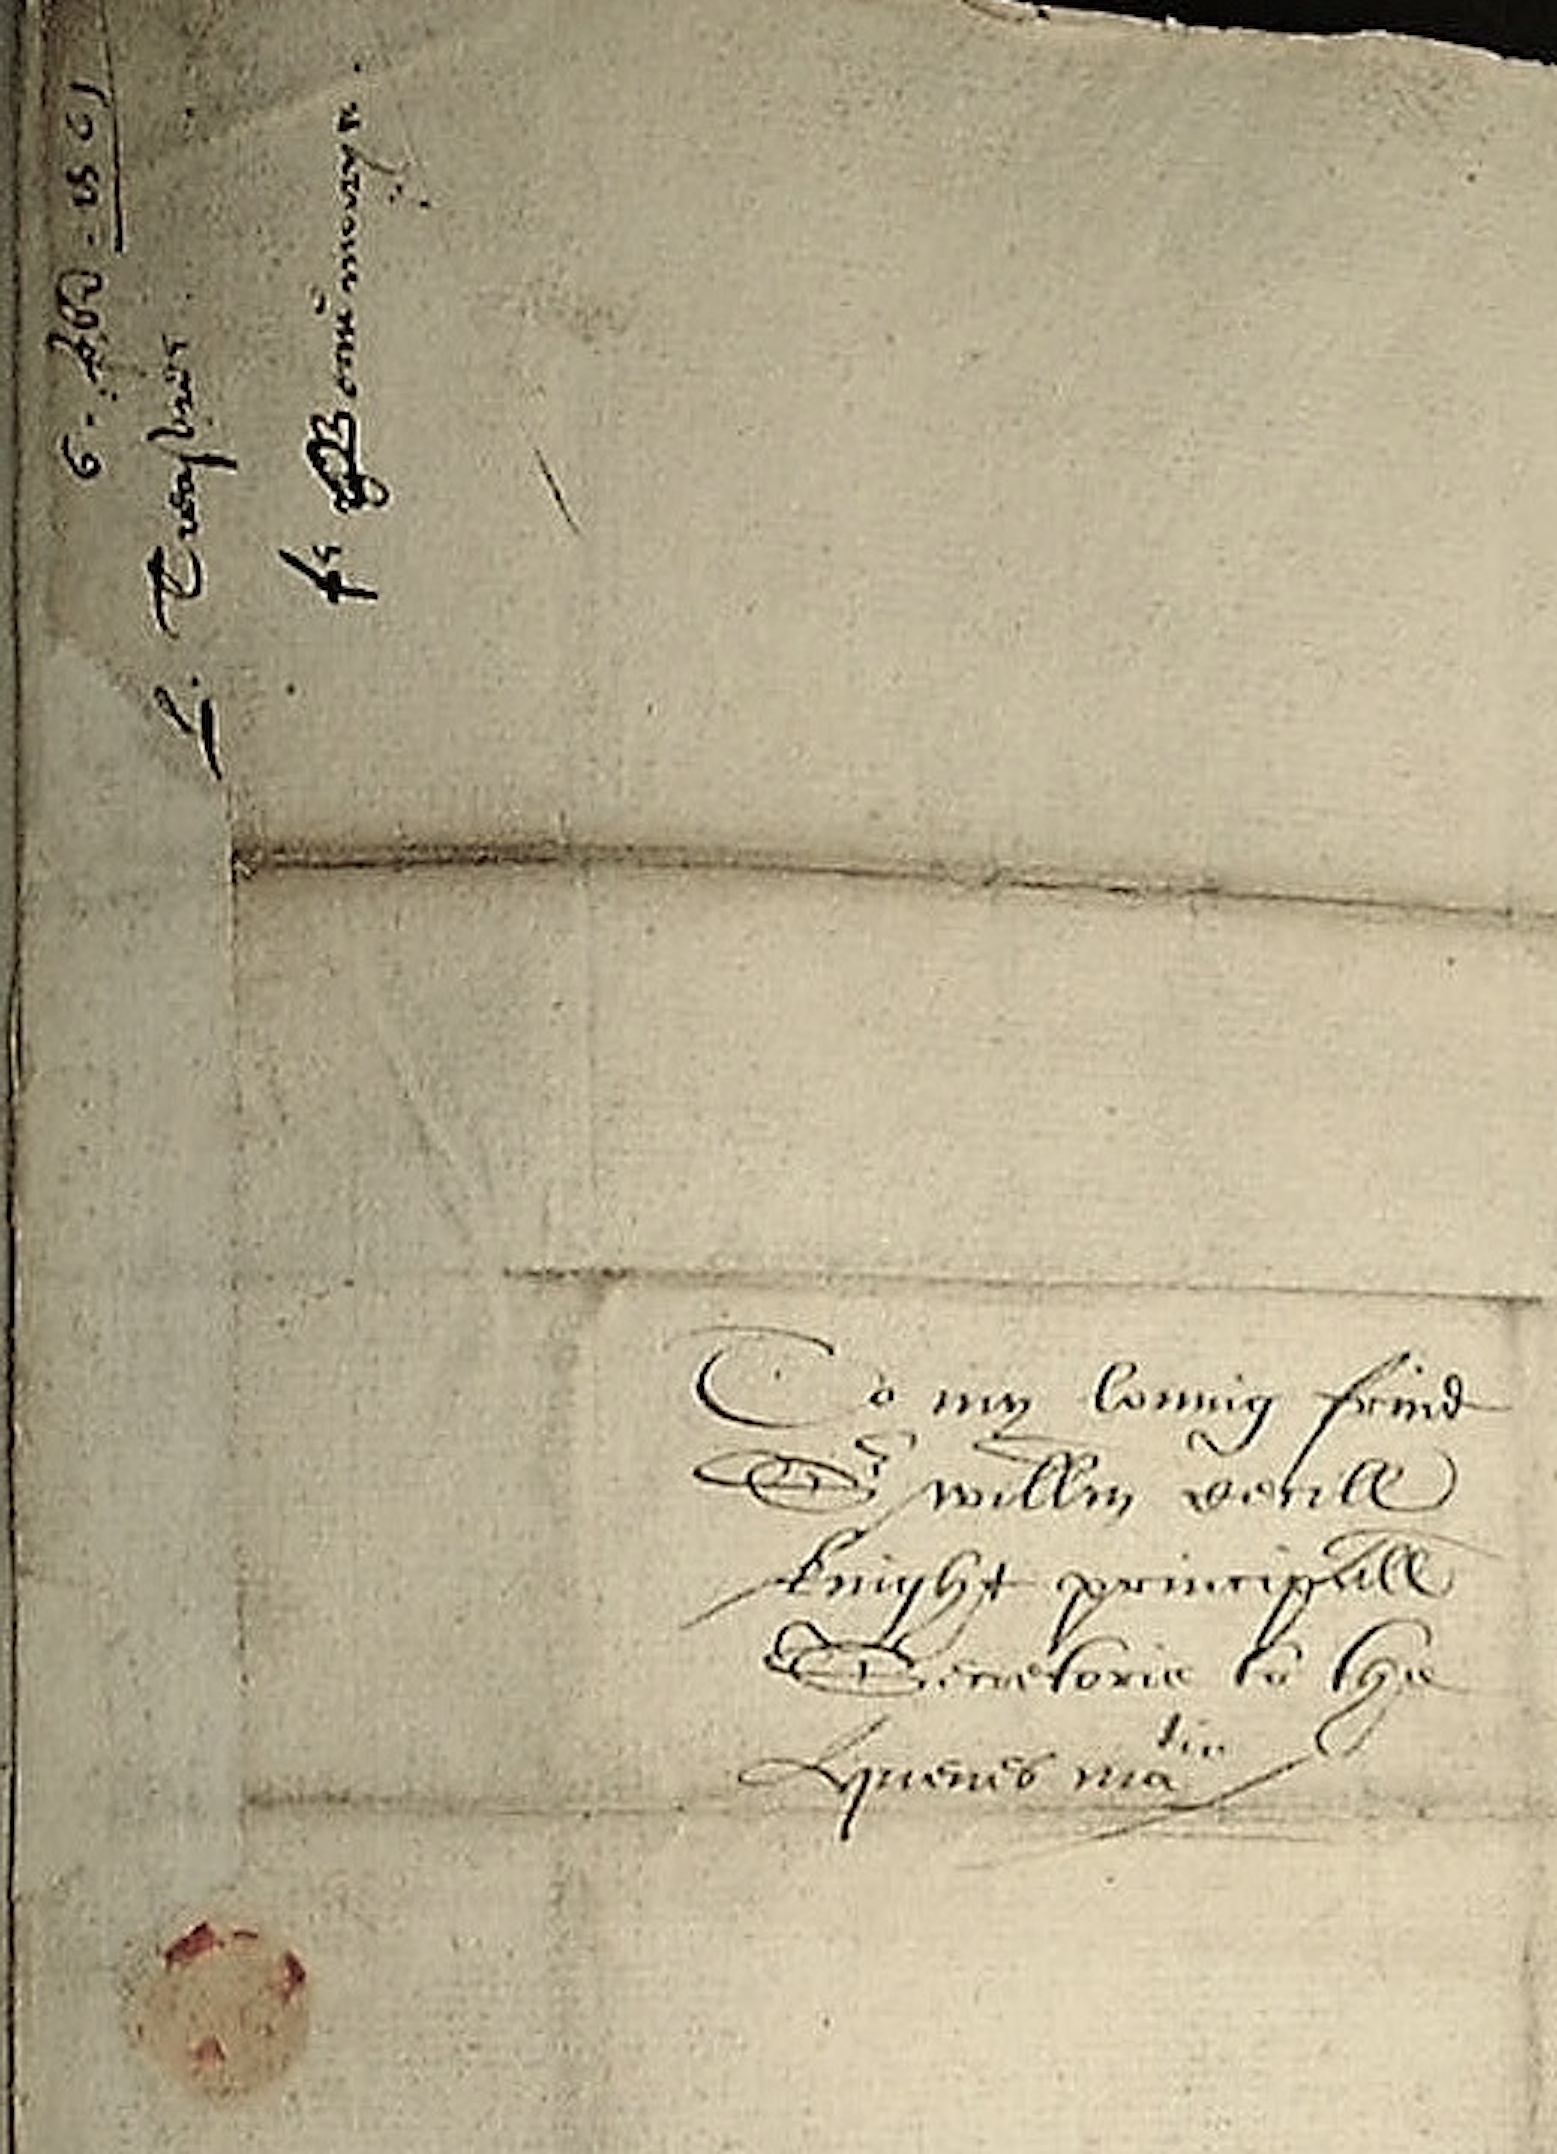 6. 1561
L. Treasurer
fr Bom̄
To my lovuig frind
Sr willm Cecill
knight principall
Secretorie to the
Quenes matie